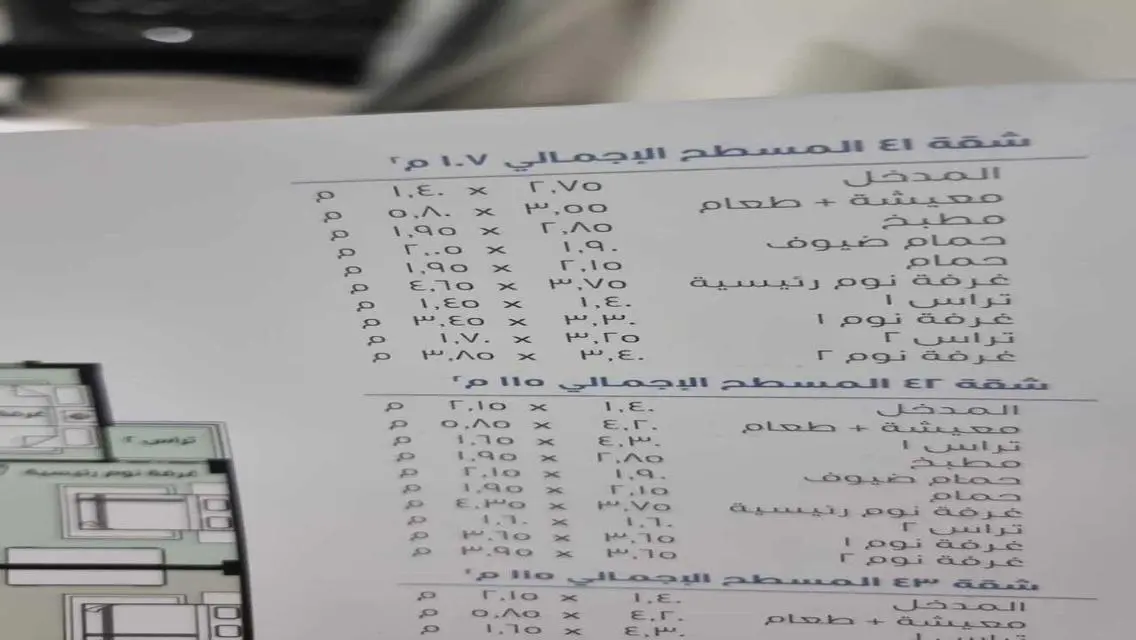 شقة ٤١ المسطح الإجمالي ١٠٧ م٢
المدخل ٢,٧٥ × ١,٤٠ م
معيشة + طعام ٣,٥٥ × ٥,٨٠ م
مطبخ ٢,٨٥ × ١,٩٥ م
حمام ضيوف ١,٩٠ × ٢,٠٥ م
حمام ٢,١٥ × ١,٩٥ م
غرفة نوم رئيسية ٣,٧٥ × ٤,٦٥ م
تراس ١ ١,٤٠ × ١,٤٥ م
غرفة نوم ١ ٣,٣٠ × ٣,٤٥ م
تراس ٢ ٣,٢٥ × ١,٧٠ م
غرفة نوم ٢ ٣,٤٠ × ٣,٨٥ م
شقة ٤٢ المسطح الإجمالي ١١٥ م٢
المدخل ١,٤٠ × ٢,١٥ م
معيشة + طعام ٤,٢٠ × ٥,٨٥ م
تراس ١ ٤,٣٠ × ١,٦٥ م
مطبخ ٢,٨٥ × ١,٩٥ م
حمام ضيوف ١,٩٠ × ٢,١٥ م
حمام ٢,١٥ × ١,٩٥ م
غرفة نوم رئيسية ٣,٧٥ × ٤,٣٥ م
تراس ٢ ١,٦٠ × ١,٦٠ م
غرفة نوم ١ ٣,٦٥ × ٣,٦٥ م
غرفة نوم ٢ ٣,٦٥ × ٣,٩٥ م
شقة ٤٣ المسطح الإجمالي ١١٥ م٢
المدخل ١,٤٠ × ٢,١٥ م
معيشة + طعام ٤,٢٠ × ٥,٨٥ م
تراس ١ ٤,٣٠ × ١,٦٥ م
غرفة
تراس ٢
غرفة نوم رئيسية